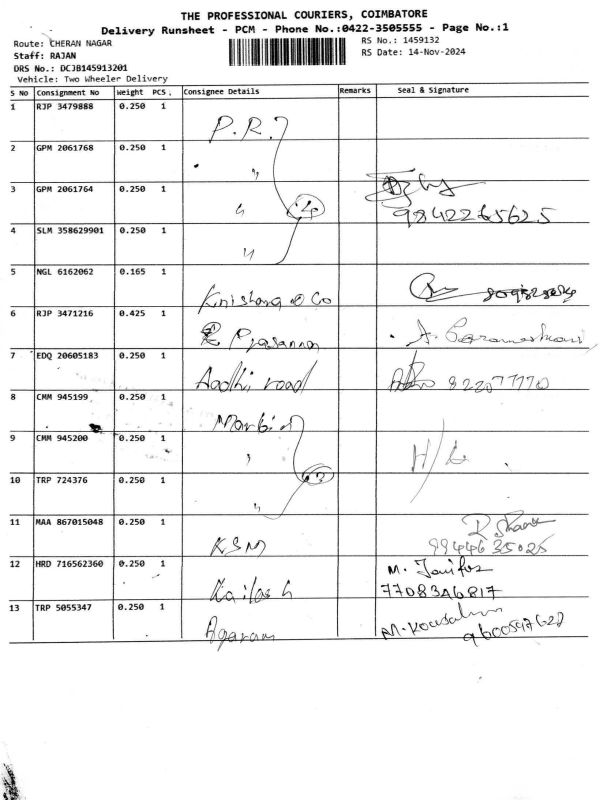 THE PROFESSIONAL COURIERS, COIMBATORE
Delivery Runsheet - PCM - Phone No.:0422-3505555 - Page No.:1
Route: CHERAN NAGAR RS No.: 1459132
Staff: RAJAN RS Date: 14-Nov-2024
DRS No.: DCJB145913201
Vehicle: Two Wheeler Delivery
S No Consignment No Weight PCS. Consignee Details Remarks Seal & Signature
1 RJP 3479888 0.250 1
P.R.
2 GPM 2061768 0.250 1
"
3 GPM 2061764 0.250 1
" 4 9842265625
4 SLM 358629901 0.250 1
"
5 NGL 6162062 0.165 1
Krishna & Co
6 RJP 3471216 0.425 1
Prasanna A.
7 EDQ 20605183 0.250 1
Aadhi road 822077770
8 CMM 945199 0.250 1
9 CMM 945200 0.250 1
"
10 TRP 724376 0.250 1
" 3
11 MAA 867015048 0.250 1
KSM 9944635025
12 HRD 716562360 0.250 1 M.
Kailash 7708346817
13 TRP 5055347 0.250 1
Agaram M. 9600597628